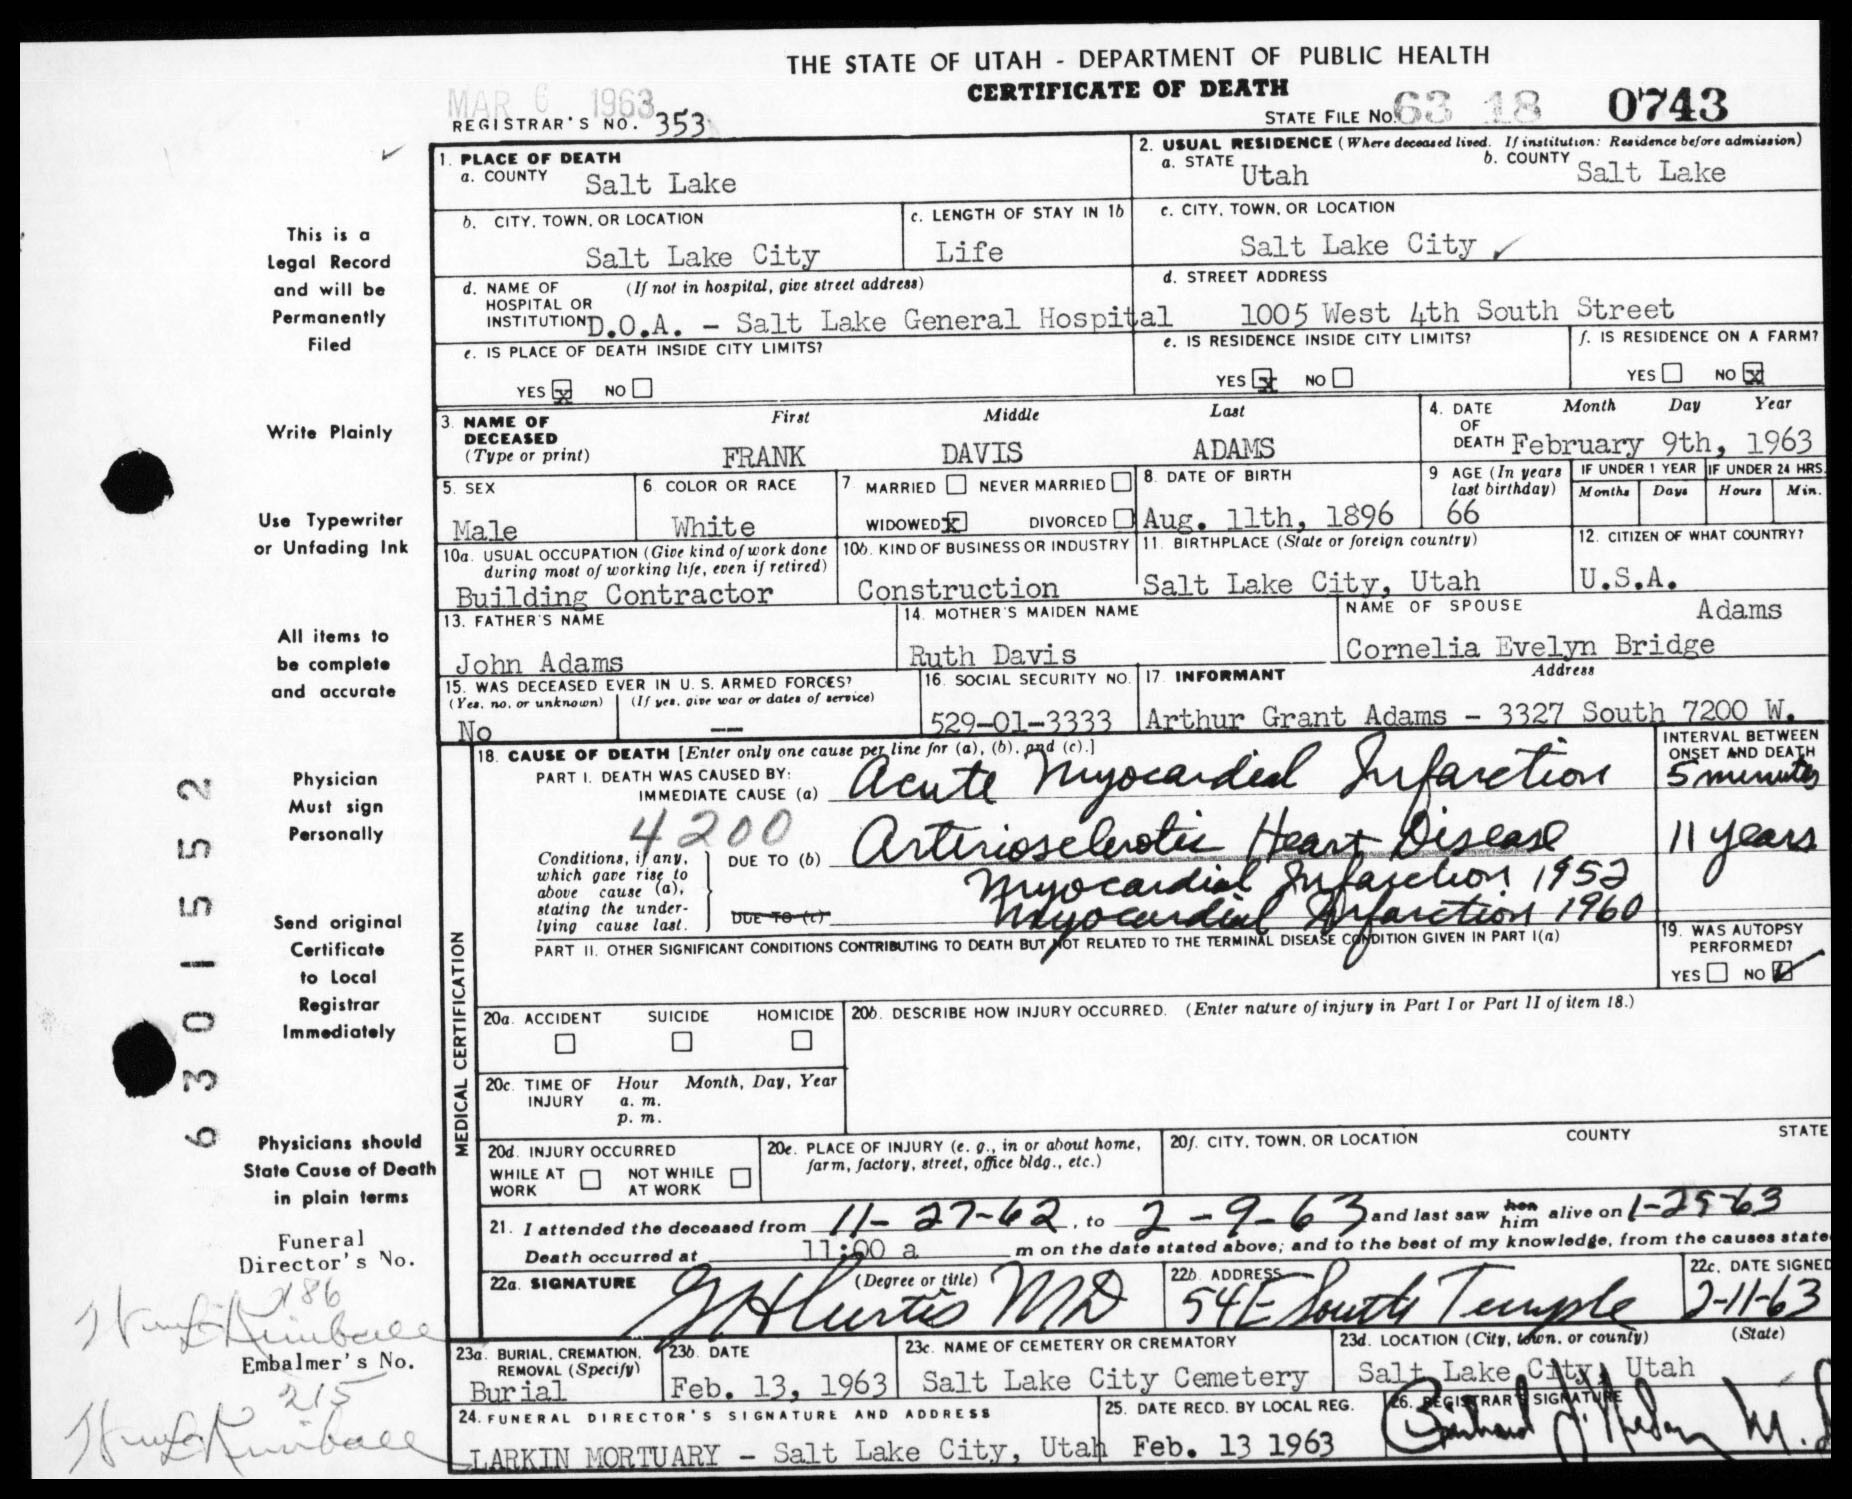 THE STATE OF UTAH - DEPARTMENT OF PUBLIC HEALTH
CERTIFICATE OF DEATH
MAR 6 1963
REGISTRAR'S NO. 353
STATE FILE NO. 63 18 0743
1. PLACE OF DEATH
a. COUNTY Salt Lake
2. USUAL RESIDENCE (Where deceased lived. If institution: Residence before admission)
a. STATE Utah b. COUNTY Salt Lake
b. CITY, TOWN, OR LOCATION
Salt Lake City
c. LENGTH OF STAY IN 1b
Life
c. CITY, TOWN, OR LOCATION
Salt Lake City
d. NAME OF HOSPITAL OR INSTITUTION (If not in hospital, give street address)
D.O.A. - Salt Lake General Hospital
d. STREET ADDRESS
1005 West 4th South Street
e. IS PLACE OF DEATH INSIDE CITY LIMITS?
YES x NO
e. IS RESIDENCE INSIDE CITY LIMITS?
YES x NO
f. IS RESIDENCE ON A FARM?
YES NO x
3. NAME OF DECEASED (Type or print)
First Middle Last
FRANK DAVIS ADAMS
4. DATE OF DEATH Month Day Year
February 9th, 1963
5. SEX
Male
6. COLOR OR RACE
White
7. MARRIED NEVER MARRIED
WIDOWED x DIVORCED
8. DATE OF BIRTH
Aug. 11th, 1896
9 AGE (In years last birthday)
66
IF UNDER 1 YEAR
Months Days
IF UNDER 24 HRS.
Hours Min.
10a. USUAL OCCUPATION (Give kind of work done during most of working life, even if retired)
Building Contractor
10b. KIND OF BUSINESS OR INDUSTRY
Construction
11. BIRTHPLACE (State or foreign country)
Salt Lake City, Utah
12. CITIZEN OF WHAT COUNTRY?
U.S.A.
13. FATHER'S NAME
John Adams
14. MOTHER'S MAIDEN NAME
Ruth Davis
NAME OF SPOUSE Adams
Cornelia Evelyn Bridge
15. WAS DECEASED EVER IN U.S. ARMED FORCES?
(Yes, no, or unknown) (If yes, give war or dates of service)
No --
16. SOCIAL SECURITY NO.
529-01-3333
17. INFORMANT Address
Arthur Grant Adams - 3327 South 7200 W.
18. CAUSE OF DEATH [Enter only one cause per line for (a), (b), and (c).]
INTERVAL BETWEEN ONSET AND DEATH
PART I. DEATH WAS CAUSED BY:
IMMEDIATE CAUSE (a) Acute Myocardial Infarction 5 minutes
4200
Conditions, if any, which gave rise to above cause (a), stating the underlying cause last.
DUE TO (b) Arteriosclerotic Heart Disease 11 years
Myocardial Infarction 1952
DUE TO (c) Myocardial Infarction 1960
PART II. OTHER SIGNIFICANT CONDITIONS CONTRIBUTING TO DEATH BUT NOT RELATED TO THE TERMINAL DISEASE CONDITION GIVEN IN PART I(a)
19. WAS AUTOPSY PERFORMED?
YES NO ✓
MEDICAL CERTIFICATION
20a. ACCIDENT SUICIDE HOMICIDE
20b. DESCRIBE HOW INJURY OCCURRED. (Enter nature of injury in Part I or Part II of item 18.)
20c. TIME OF INJURY Hour Month, Day, Year
a. m.
p. m.
20d. INJURY OCCURRED
WHILE AT WORK NOT WHILE AT WORK
20e. PLACE OF INJURY (e. g., in or about home, farm, factory, street, office bldg., etc.)
20f. CITY, TOWN, OR LOCATION COUNTY STATE
21. I attended the deceased from 11-27-62, to 2-9-63 and last saw her him alive on 1-25-63
Death occurred at 11:00 a m on the date stated above; and to the best of my knowledge, from the causes state
22a. SIGNATURE (Degree or title)
G H Curtis MD
22b. ADDRESS
54 E South Temple
22c. DATE SIGNED
2-11-63
23a. BURIAL, CREMATION, REMOVAL (Specify)
Burial
23b. DATE
Feb. 13, 1963
23c. NAME OF CEMETERY OR CREMATORY
Salt Lake City Cemetery
23d. LOCATION (City, town, or county) (State)
Salt Lake City, Utah
24. FUNERAL DIRECTOR'S SIGNATURE AND ADDRESS
LARKIN MORTUARY - Salt Lake City, Utah
25. DATE RECD. BY LOCAL REG.
Feb. 13 1963
26. REGISTRAR'S SIGNATURE
This is a
Legal Record
and will be
Permanently
Filed
Write Plainly
Use Typewriter
or Unfading Ink
All items to
be complete
and accurate
Physician
Must sign
Personally
Send original
Certificate
to Local
Registrar
Immediately
Physicians should
State Cause of Death
in plain terms
Funeral
Director's No.
186
Kimball
Embalmer's No.
215
Kimball
6301552